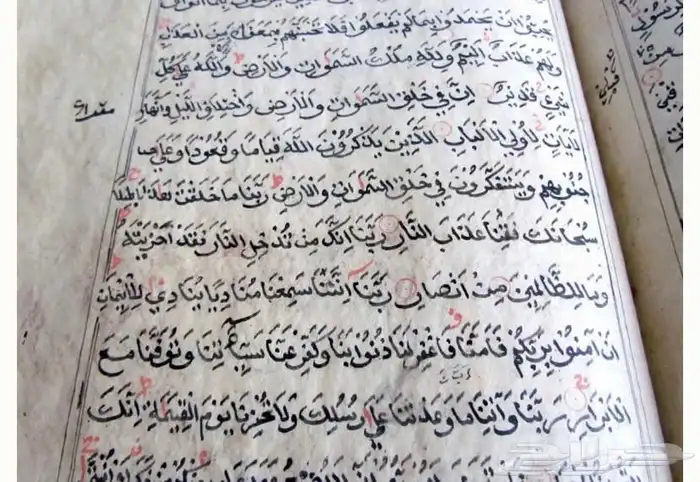 يُحِبُّونَ اَنْ يُحْمَدُوا بِمَا لَمْ يَفْعَلُوا فَلَا تَحْسَبَنَّهُمْ بِمَفَازَةٍ مِنَ الْعَذَابِ
وَلَهُمْ عَذَابٌ اَلِيمٌ وَلِلّٰهِ مُلْكُ السَّمٰوَاتِ وَالْاَرْضِ وَاللّٰهُ عَلٰى كُلِّ
شَيْءٍ قَدِيرٌ اِنَّ فِي خَلْقِ السَّمٰوَاتِ وَالْاَرْضِ وَاخْتِلَافِ اللَّيْلِ وَالنَّهَارِ
لَاٰيَاتٍ لِاُولِي الْاَلْبَابِ الَّذِينَ يَذْكُرُونَ اللّٰهَ قِيَامًا وَقُعُودًا وَعَلٰى
جُنُوبِهِمْ وَيَتَفَكَّرُونَ فِي خَلْقِ السَّمٰوَاتِ وَالْاَرْضِ رَبَّنَا مَا خَلَقْتَ هٰذَا بَاطِلًا
سُبْحَانَكَ فَقِنَا عَذَابَ النَّارِ رَبَّنَا اِنَّكَ مَنْ تُدْخِلِ النَّارَ فَقَدْ اَخْزَيْتَهُ
وَمَا لِلظَّالِمِينَ مِنْ اَنْصَارٍ رَبَّنَا اِنَّنَا سَمِعْنَا مُنَادِيًا يُنَادِي لِلْاِيمَانِ
اَنْ اٰمِنُوا بِرَبِّكُمْ فَاٰمَنَّا فَاغْفِرْ لَنَا ذُنُوبَنَا وَكَفِّرْ عَنَّا سَيِّئَاتِنَا وَتَوَفَّنَا مَعَ
الْاَبْرَارِ رَبَّنَا وَاٰتِنَا مَا وَعَدْتَنَا عَلٰى رُسُلِكَ وَلَا تُخْزِنَا يَوْمَ الْقِيٰمَةِ اِنَّكَ
حراج